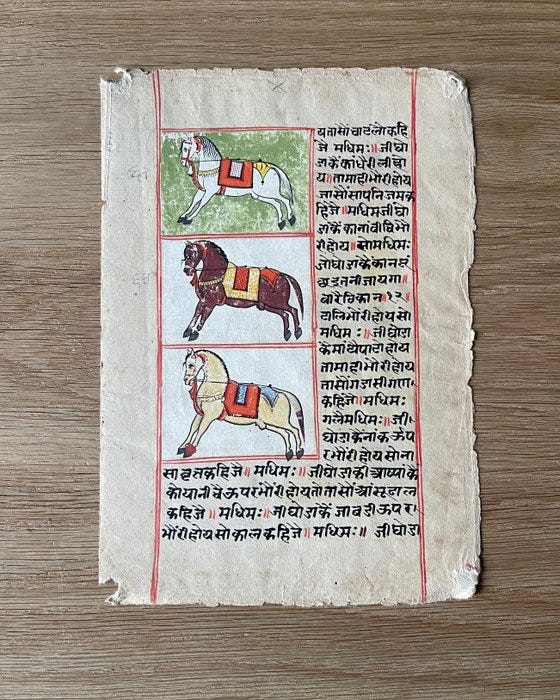 यतासौंचाटलोकहि
जे मधिमः॥जीघो
डाकैकांधैरीलीढी
य॥तामाहीभोंरीहोय
जासौंसापनिजमक
हिजे॥मधिमजीघो
डाकैकानांवीचिभों
रीहोय॥सोमधिमः
जीघोडाकैकान
छाडतनीजायगा॥
बारैचिकान॥१२॥
डालिभोंरीहोयसो
मधिमः॥जीघोडा
कैमांथैपाटाहोय
तामाहीभोंरीहोय
तासौंगजसीगण
कहिजे॥मधिमः
गलैमधिमः॥जी
घोडाकैनांकऊप
रभोंरीहोयसोना
सावृतकहिजे॥ मधिमः॥जीघोडाकीआष्यांकै
कोयानीचैऊपरभोंरीहोयतोतासौंआंसूडाल
कहिजे॥ मधिमः॥जीघोडाकैं जाबडाऊपर
भोंरीहोयसोकालकहिजे॥मधिमः॥ जीघोडा